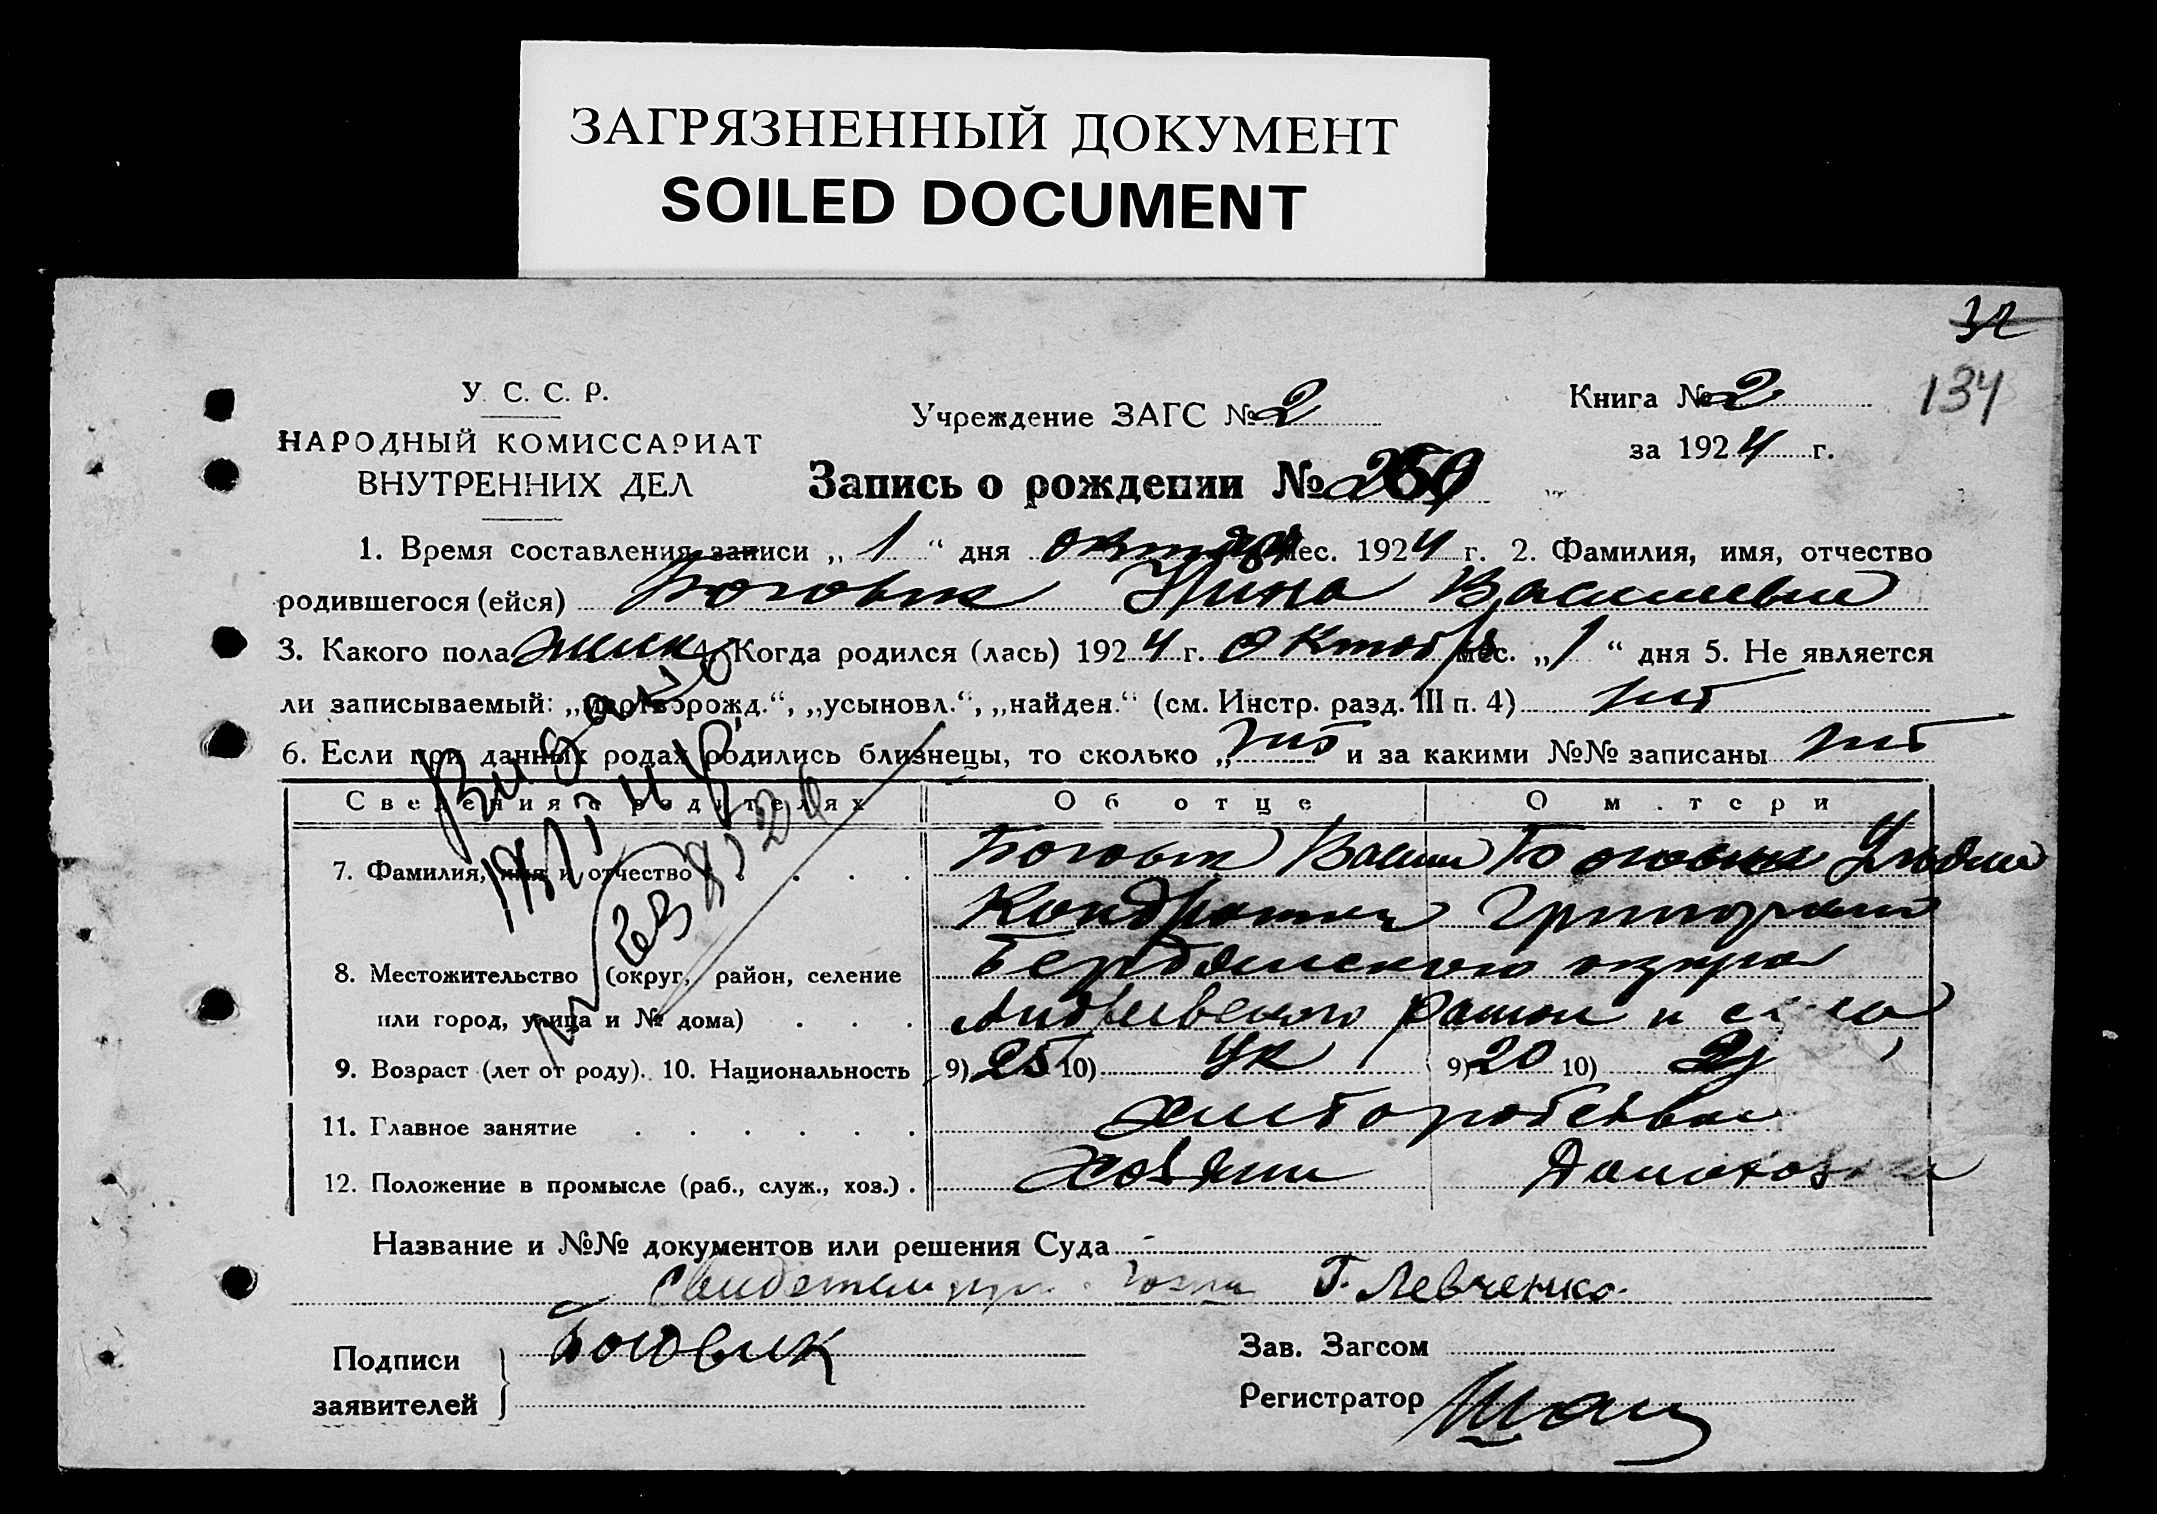 ЗАГРЯЗНЕННЫЙ ДОКУМЕНТ
SOILED DOCUMENT
32
134
У. С. С. Р.
НАРОДНЫЙ КОМИССАРИАТ
ВНУТРЕННИХ ДЕЛ
Учреждение ЗАГС № 2
Книга № 2
за 1924 г.
Запись о рождении №
1. Время составления записи „ 1 “ дня октября мес. 1924 г. 2. Фамилия, имя, отчество
родившегося (ейся) Боговик Нина Васильевна
3. Какого пола женск 4. Когда родился (лась) 1924 г. Октября мес. „ 1 “ дня 5. Не является
ли записываемый: „мертворожд.“, „усыновл.“, „найден.“ (см. Инстр. разд. III п. 4) нет
6. Если при данных родах родились близнецы, то сколько „ нет и за какими №№ записаны нет
Сведения о родителях Об отце О матери
7. Фамилия, имя и отчество Боговик Васили Боговик
Кондратиев Григорьев
8. Местожительство (округ, район, селение Бердянского округа
или город, улица и № дома) Андреевского района и села
9. Возраст (лет от роду). 10. Национальность 9) 25 10) Ук 9) 20 10)
11. Главное занятие хлиборобство
12. Положение в промысле (раб., служ., хоз.) Хозяин Домохоз
Название и №№ документов или решения Суда
Г. Левченко
Подписи заявителей Боговик
Зав. Загсом
Регистратор
Видано